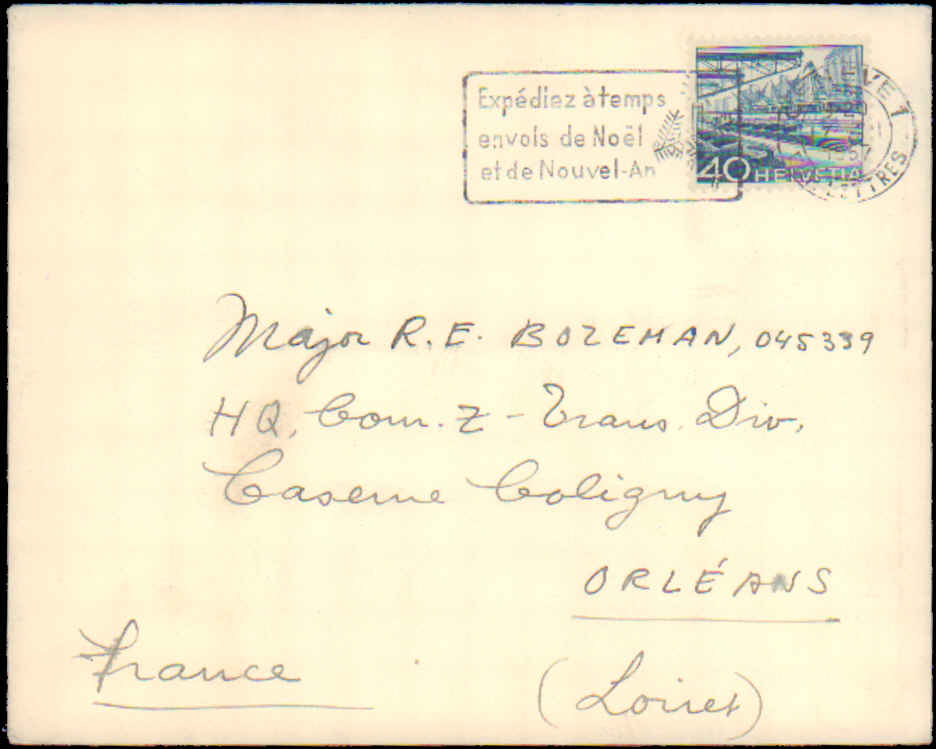 Expédiez à temps
envois de Noël
et de Nouvel-An
40 HELVETIA
1957
LETTRES
Major R.E. BOZEMAN, 045339
HQ, Com. Z - Trans. Div.
Caserne Coligny
ORLÉANS
France
(Loiret)